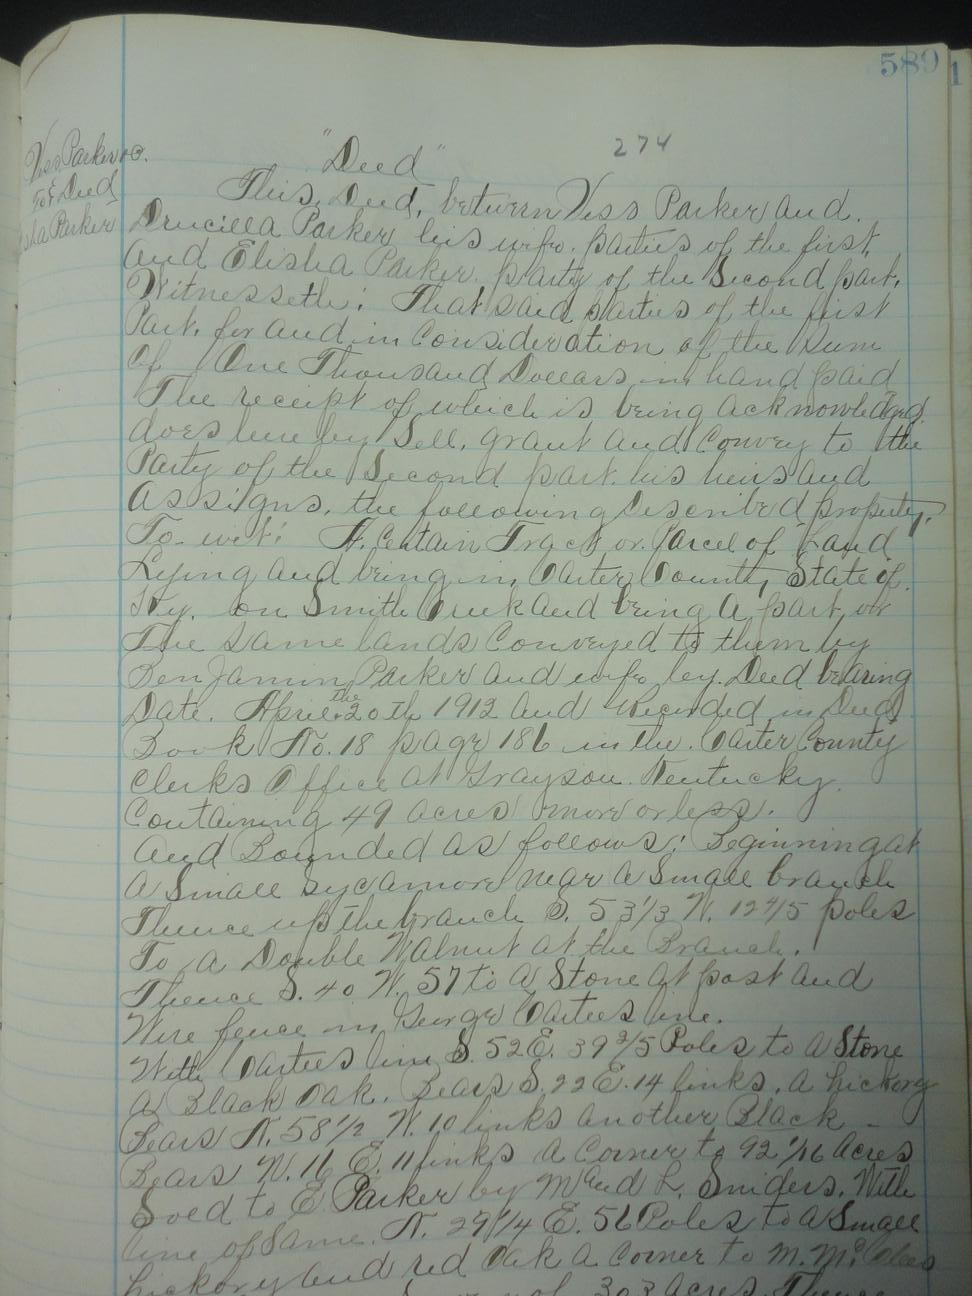 589
Viss Parker &c.
To & Deed
Elisha Parker
"Deed"
274
This, Deed, between Viss Parker and.
Drucilla Parker his wife. parties of the first,
And Elisha Parker. party of the Second part.
Witnesseth: That said parties of the first
Part. for and in Consideration of the Sum
Of One Thousand Dollars in hand paid
The receipt of which is being acknowledged
does here by Sell, grant and Convey to the
Party of the Second part. his heirs and
Assigns. the following described property,
To-wit: A. Certain Tract or Parcel of Land
Lying and being in, Carter County, State of
Ky. on Smith Creek and being a part, or
The same lands Conveyed to them by
Benjamin Parker and wife by. Deed bearing
Date. April the 20th 1912 and Recorded in Deed
Book No. 18 page 186 in the. Carter County
Clerks Office at Grayson. Kentucky.
Containing 49 acres more or less.
And Bounded as follows: Beginning at
A Small sycamore near a Small branch
Thence up the branch S. 53 1/3 W. 12 4/5 poles
To a Double Walnut at the Branch.
Thence S. 40 W. 57 to a Stone at post and
Wire fence in George Carters line.
With Carters line S. 52 E. 39 2/5 Poles to a Stone
a Black Oak. Bears S. 22 E. 14 links. a hickory
Bears N. 58 1/2 W. 10 links another Black
Bears N. 16 E. 11 links a Corner to 92 1/16 Acres
Soed to E. Parker by M and L. Sniders. With
line of Same. N. 29 1/4 E. 56 Poles to a Small
hickory and red Oak a Corner to M. Mc
303 acres. Thence